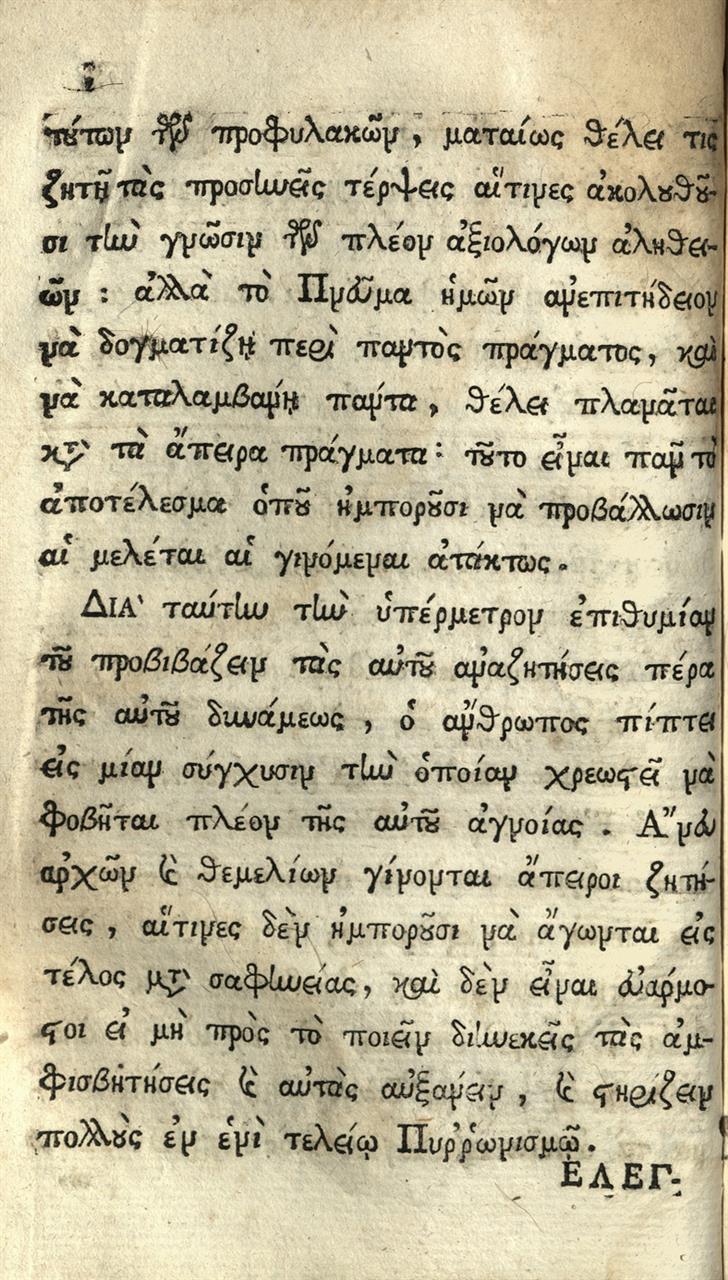 ι
τούτων τῶν προφυλακῶν, ματαίως θέλει τις
ζητῇ τὰς προσηνεῖς τέρψεις αἵτινες ἀκολουθοῦ-
σι τὴν γνῶσιν τῶν πλέον ἀξιολόγων ἀληθει-
ῶν : ἀλλὰ τὸ Πνεῦμα ἡμῶν ἀνεπιτήδειον
νὰ δογματίζῃ περὶ παντὸς πράγματος, καὶ
νὰ καταλαμβάνῃ πάντα, θέλει πλανᾶται
κατὰ τὰ ἄπειρα πράγματα: τοῦτο εἶναι πᾶν τὸ
ἀποτέλεσμα ὁποῦ ἠμποροῦσι νὰ προβάλλωσιν
αἱ μελέται αἱ γινόμεναι ἀτάκτως.
ΔΙΑ` ταύτην τὴν ὑπέρμετρον ἐπιθυμίαν
τοῦ προβιβάζειν τὰς αὑτοῦ ἀναζητήσεις πέρα
τῆς αὑτοῦ δυνάμεως, ὁ ἄνθρωπος πίπτει
εἰς μίαν σύγχυσιν τὴν ὁποίαν χρεωστεῖ νὰ
φοβῆται πλέον τῆς αὑτοῦ ἀγνοίας. Α῎νευ
ἀρχῶν καὶ θεμελίων γίνονται ἄπειροι ζητή-
σεις, αἵτινες δὲν ἠμποροῦσι νὰ ἄγωνται εἰς
τέλος μετὰ σαφηνείας, καὶ δὲν εἶναι εὐάρμο-
στοι εἰ μὴ πρὸς τὸ ποιεῖν διηνεκεῖς τὰς ἀμ-
φισβητήσεις καὶ αὐτὰς αὐξάνειν, καὶ στηρίζειν
πολλοὺς ἐν ἑνὶ τελείῳ Πυῤῥωνισμῷ.
ΕΛΕΓ-